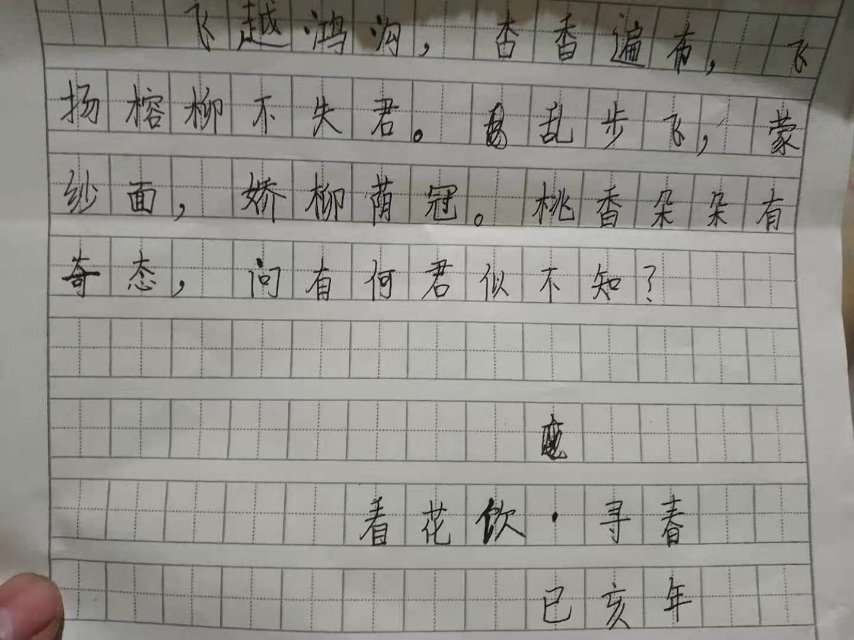 飞越鸿沟，杳香遍布，飞
扬榕柳不失君。乱步飞，蒙
纱面，娇柳荫冠。桃香朵朵有
奇态，问有何君似不知？
看花饮·寻春
已亥年